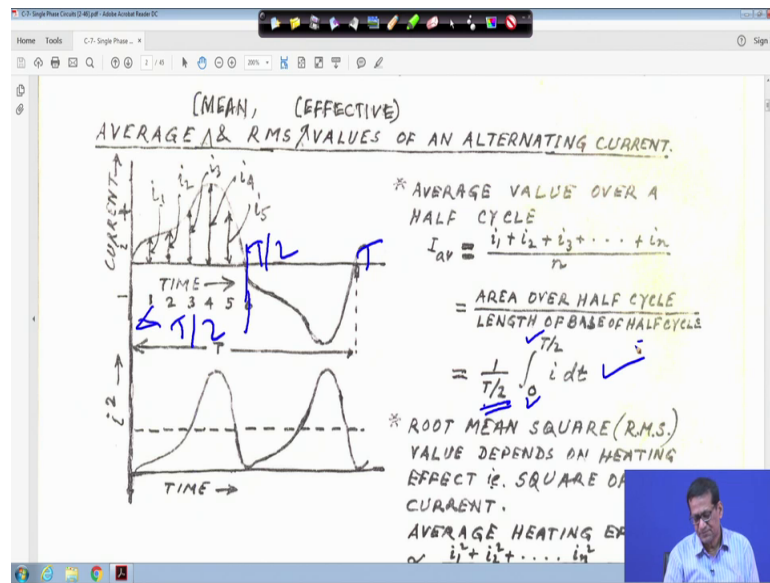 C-7- Single Phase Circuits [2-46].pdf - Adobe Acrobat Reader DC
Home Tools C-7- Single Phase ... × Sign
2 / 45 200%
(MEAN, (EFFECTIVE)
AVERAGE & RMS VALUES OF AN ALTERNATING CURRENT.
CURRENT →
i +
i1 i2 i3 i4 i5
T/2 T
TIME →
1 2 3 4 5
T/2
T
i² →
TIME →
* AVERAGE VALUE OVER A
HALF CYCLE
Iav = i1 + i2 + i3 + . . . + in / n
= AREA OVER HALF CYCLE / LENGTH OF BASE OF HALF CYCLE
= 1 / T/2 ∫ 0 T/2 i dt
* ROOT MEAN SQUARE (R.M.S.)
VALUE DEPENDS ON HEATING
EFFECT ie. SQUARE
CURRENT.
AVERAGE HEATING
∝ i1² + i2² + . . . . in²